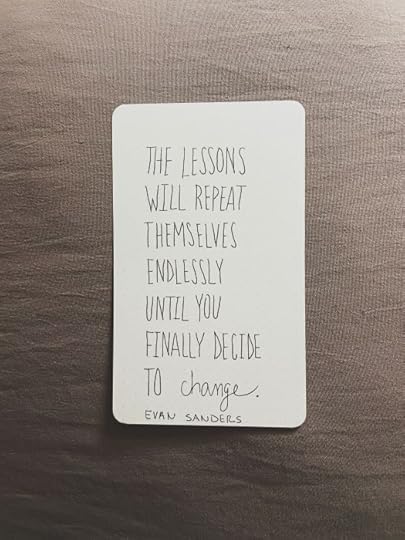 THE LESSONS
WILL REPEAT
THEMSELVES
ENDLESSLY
UNTIL YOU
FINALLY DECIDE
TO change.
EVAN SANDERS